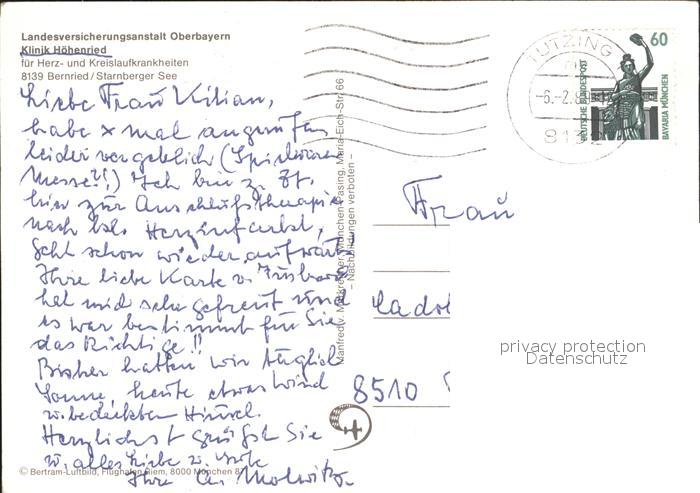 Landesversicherungsanstalt Oberbayern
Klinik Höhenried
für Herz- und Kreislaufkrankheiten
8139 Bernried / Starnberger See
Liebe Frau Kilian,
habe x mal angerufen
leider vergeblich (Spielwaren
Messe?!) Ich bin z. Zt.
hier zur Anschlußtherapie
nach bds. Herzinfarkt,
geht schon wieder aufwärts
Ihre liebe Karte v.
hat mich sehr gefreut und
es war bestimmt für Sie
das Richtige!!
Bisher hatten wir täglich
Sonne, heute etwas Wind
u. bedeckten Himmel.
Herzlichst grüßt Sie
u. alles Liebe u. Gute
Ihre
© Bertram-Luftbild, Flughafen Riem, 8000 München 87
Manfred v. München-Pasing, Maria-Eich-Str. 66
– Nachbildungen verboten –
TUTZING
-6.-2.8
813
DEUTSCHE BUNDESPOST
60
BAVARIA MÜNCHEN
Frau
8510
privacy protection
Datenschutz